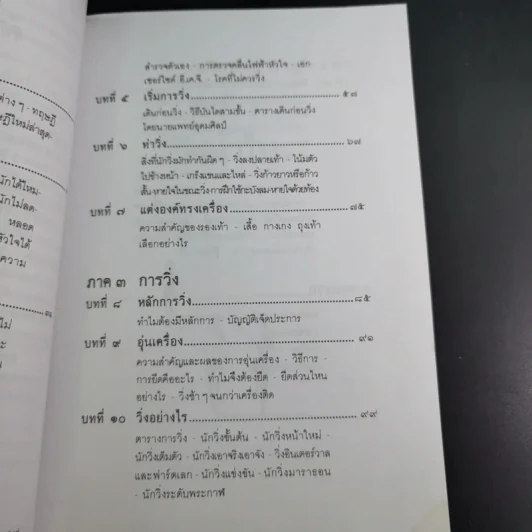 ต่าง ๆ - ทฤษฎี
ษฎีใหม่ล่าสุด-
นักได้ไหม-
นักไม่ลด-
หลอด
หัวใจได้
ความ
ไม่
สำรวจตัวเอง - การตรวจคลื่นไฟฟ้าหัวใจ - เอก-
เซอร์ไซค์ อี.เค.จี. - โรคที่ไม่ควรวิ่ง
บทที่ ๕ เริ่มการวิ่ง ๕๗
เดินก่อนวิ่ง - วิธีบันไดสามขั้น - ตารางเดินก่อนวิ่ง
โดยนายแพทย์อุดมศิลป์
บทที่ ๖ ท่าวิ่ง ๖๗
สิ่งที่นักวิ่งมักทำกันผิด ๆ - วิ่งลงปลายเท้า - โน้มตัว
ไปข้างหน้า - เกร็งแขนและไหล่ - วิ่งก้าวยาวหรือก้าว
สั้น-หายใจในขณะวิ่ง-การฝึกใช้กะบังลม-หายใจด้วยท้อง
บทที่ ๗ แต่งองค์ทรงเครื่อง ๗๕
ความสำคัญของรองเท้า - เสื้อ กางเกง ถุงเท้า
เลือกอย่างไร
ภาค ๓ การวิ่ง
บทที่ ๘ หลักการวิ่ง ๘๕
ทำไมต้องมีหลักการ - บัญญัติเจ็ดประการ
บทที่ ๙ อุ่นเครื่อง ๙๑
ความสำคัญและผลของการอุ่นเครื่อง - วิธีการ -
การยืดคืออะไร - ทำไมจึงต้องยืด - ยืดส่วนไหน
อย่างไร - วิ่งช้า ๆ จนกว่าเครื่องติด
บทที่ ๑๐ วิ่งอย่างไร ๙๙
ตารางการวิ่ง - นักวิ่งขั้นต้น - นักวิ่งหน้าใหม่ -
นักวิ่งเต็มตัว - นักวิ่งเอาจริงเอาจัง - วิ่งอินเตอร์วาล
และฟาร์ตเลก - นักวิ่งแข่งขัน - นักวิ่งมาราธอน
- นักวิ่งระดับพระกาฬ